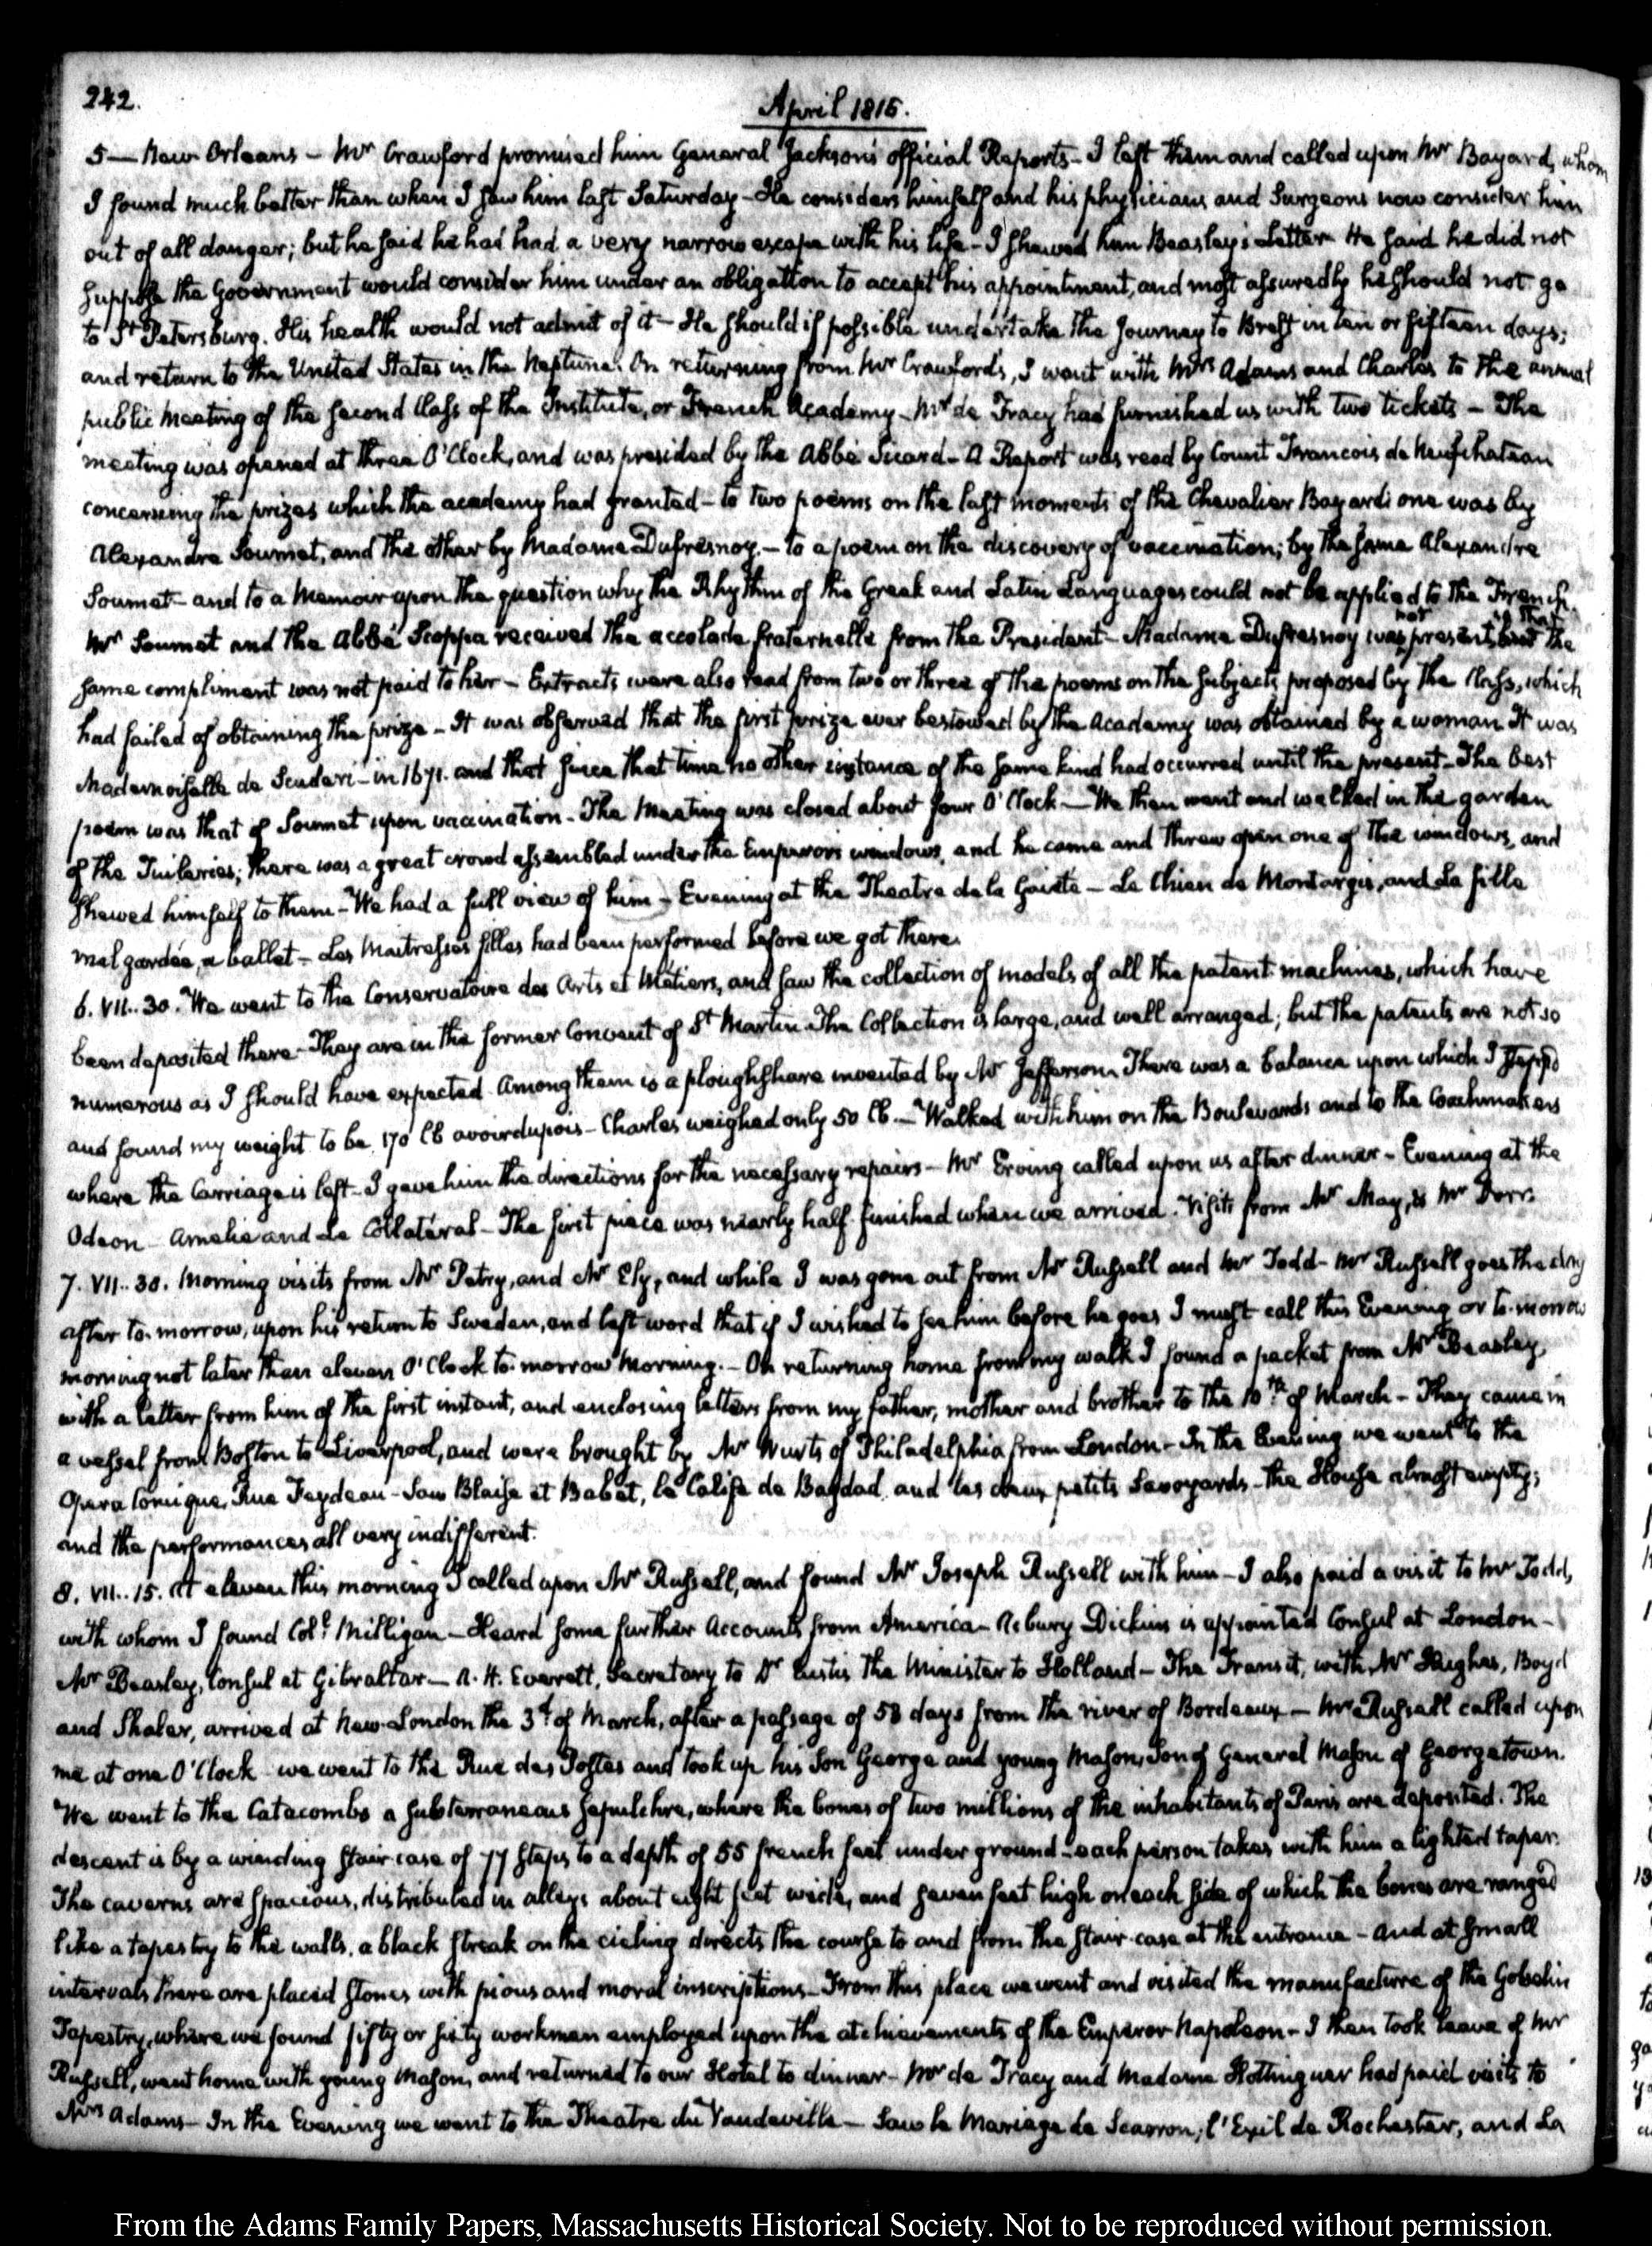 242.
April 1815.
5 — New Orleans — Mr Crawford promised him General Jackson's official Reports — I left them and called upon Mr Bayard, whom
I found much better than when I saw him last Saturday — He considers himself and his physicians and Surgeons now consider him
out of all danger; but he said he had had a very narrow escape with his life — I shewed him Beasley's Letter He said he did not
suppose the Government would consider him under an obligation to accept his appointment, and most assuredly he should not go
to St Petersburg. His health would not admit of it — He should if possible undertake the journey to Brest in ten or fifteen days;
and return to the United States in the Neptune. On returning from Mr Crawford's, I went with Mrs Adams and Charles to the annual
public meeting of the second Class of the Institute, or French Academy — Mr de Tracy had furnished us with two tickets — The
meeting was opened at three O'Clock, and was presided by the Abbé Sicard — A Report was read by Count Francois de Neufchateau
concerning the prizes which the academy had granted — to two poems on the last moments of the Chevalier Bayard; one was by
Alexandre Soumet, and the other by Madame Dufresnoy. — to a poem on the discovery of vaccination; by the same Alexandre
Soumet — and to a Memoir upon the question why the Rhythm of the Greek and Latin Languages could not be applied to the French.
Mr Soumet and the Abbé Scoppa received the accolade fraternelle from the President — Madame Dufresnoy was not present, so that the
same compliment was not paid to her — Extracts were also read from two or three of the poems on the subjects proposed by the Class, which
had failed of obtaining the prize — It was observed that the first prize ever bestowed by the Academy was obtained by a woman It was
Mademoiselle de Scuderi — in 1671. and that since that time no other instance of the same kind had occurred until the present — The best
poem was that of Soumet upon vaccination — The Meeting was closed about four O'Clock — We then went and walked in the garden
of the Tuileries; there was a great crowd assembled under the Emperor's windows, and he came and threw open one of the windows, and
shewed himself to them — We had a full view of him — Evening at the Theatre de la Gaieté — Le Chien de Montargis, and La fille
mal gardée, a ballet — Les Maitresses filles had been performed before we got there.
6. VII..30. We went to the Conservatoire des Arts et Métiers, and saw the collection of models of all the patent machines, which have
been deposited there — They are in the former Convent of St Martin The Collection is large, and well arranged; but the patents are not so
numerous as I should have expected. Among them is a ploughshare invented by Mr Jefferson There was a balance upon which I stepp'd
and found my weight to be 170 lb avoirdupois — Charles weighed only 50 lb. — Walked with him on the Boulevards and to the Coachmakers
where the Carriage is left — I gave him the directions for the necessary repairs — Mr Erving called upon us after dinner — Evening at the
Odeon — Amelie and Le Collatéral — The first piece was nearly half finished when we arrived. Visits from Mr May, & Mr Dorr.
7. VII..30. Morning visits from Mr Petry, and Mr Ely, and while I was gone out from Mr Russell and Mr Todd — Mr Russell goes the day
after to-morrow, upon his return to Sweden, and left word that if I wished to see him before he goes I must call this Evening or to-morrow
morning not later than eleven O'Clock to-morrow Morning. — On returning home from my walk I found a packet from Mr Beasley,
with a letter from him of the first instant, and enclosing letters from my father, mother and brother to the 10th of March — They came in
a vessel from Boston to Liverpool, and were brought by Mr Wurts of Philadelphia from London — In the Evening we went to the
Opera Comique, Rue Feydeau — Saw Blaise et Babet, le Calife de Bagdad, and les deux petits Savoyards — the House almost empty;
and the performances all very indifferent.
8. VII..15. At eleven this morning I called upon Mr Russell, and found Mr Joseph Russell with him — I also paid a visit to Mr Todd,
with whom I found Coll Milligan — Heard some further Accounts from America — Asbury Dickins is appointed Consul at London —
Mr Beasley, Consul at Gibraltar — A. H. Everett, Secretary to Dr Eustis the Minister to Holland — The Transit, with Mr Hughes, Boyd
and Shaler, arrived at New-London the 3d of March, after a passage of 58 days from the river of Bordeaux — Mr Russell called upon
me at one O'Clock we went to the Rue des Postes and took up his Son George and young Mason, Son of General Mason of Georgetown.
We went to the Catacombs a subterraneous sepulchre, where the bones of two millions of the inhabitants of Paris are deposited. The
descent is by a winding stair-case of 77 steps to a depth of 55 french feet under ground — each person takes with him a lighted taper.
The caverns are spacious, distributed in alleys about eight feet wide, and seven feet high on each side of which the bones are ranged
like a tapestry to the walls. a black streak on the cieling directs the course to and from the stair-case at the entrance — and at small
intervals there are placed stones with pious and moral inscriptions — From this place we went and visited the manufacture of the Gobelin
Tapestry, where we found fifty or sixty workmen employed upon the atchievements of the Emperor Napoleon — I then took leave of Mr
Russell, went home with young Mason, and returned to our Hotel to dinner — Mr de Tracy and Madame Hottinguer had paid visits to
Mrs Adams — In the Evening we went to the Theatre du Vaudeville — Saw le Mariage de Scarron, l'Exil de Rochester, and La
From the Adams Family Papers, Massachusetts Historical Society. Not to be reproduced without permission.